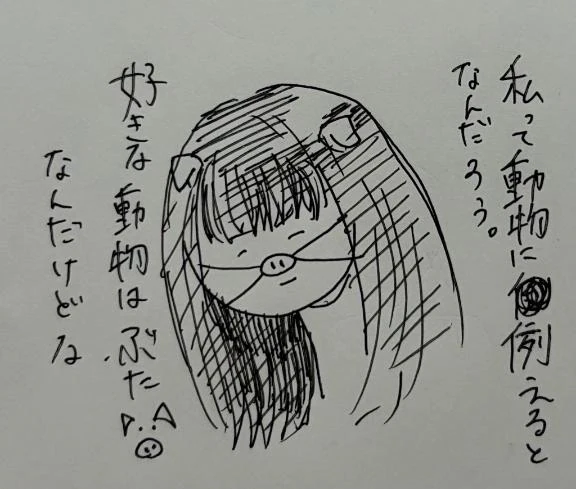 私って動物に例えると
なんだろう。
好きな動物はぶた
なんだけどな